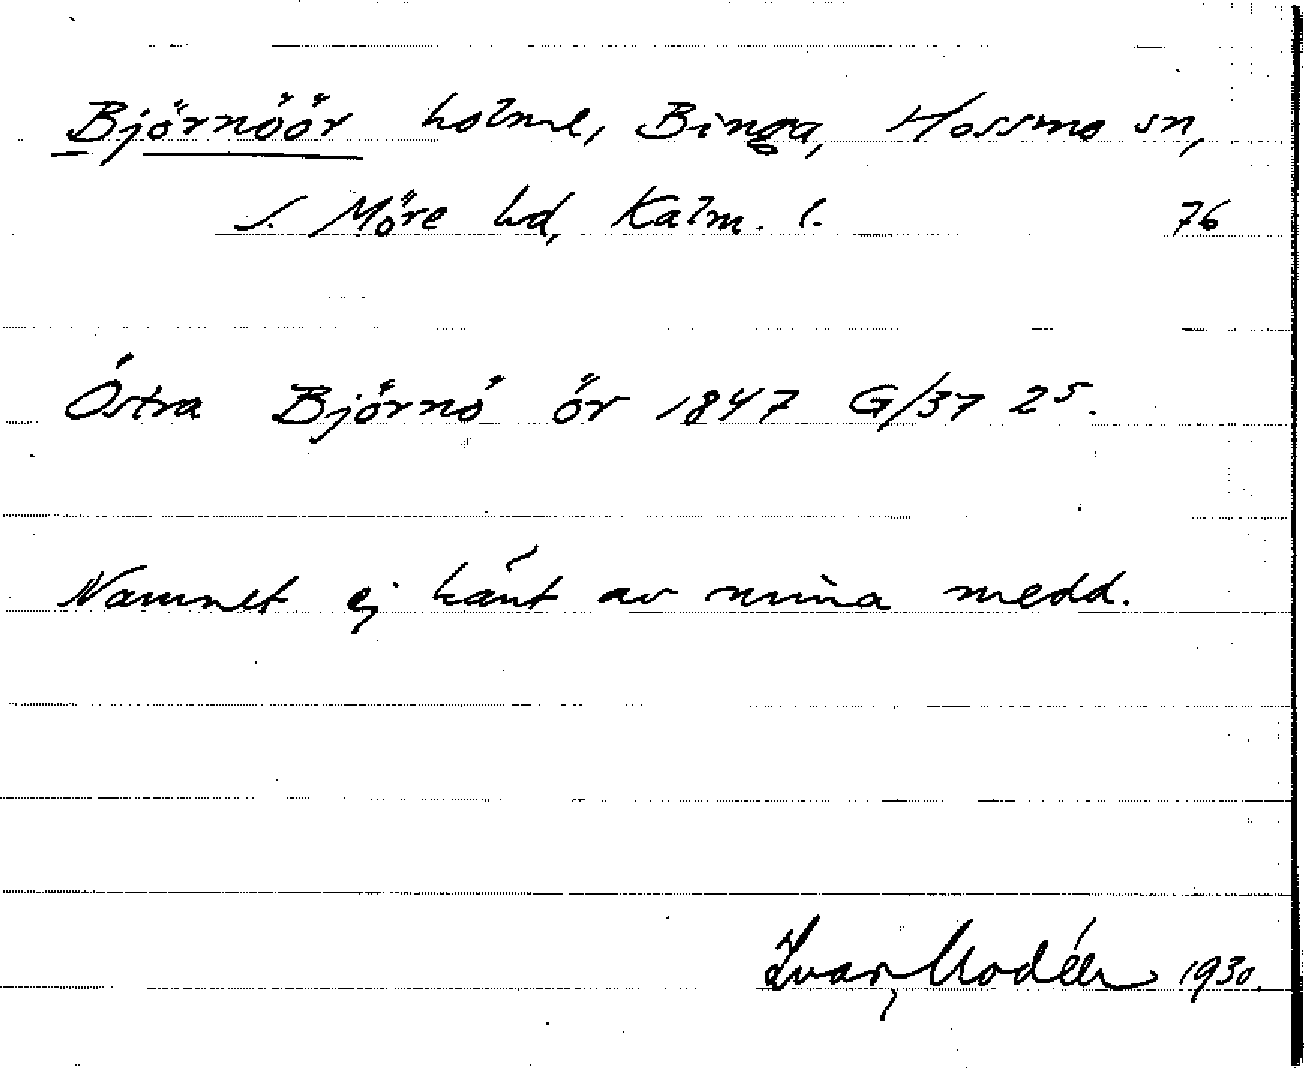 Björnöör holme, Binga, Hossmo sn,
S. Möre hd, Kalm. l. 76
Östra Björnö ör 1847 G/37 25.
Namnet ej känt av mina medd.
Ivar Modéer 1930.